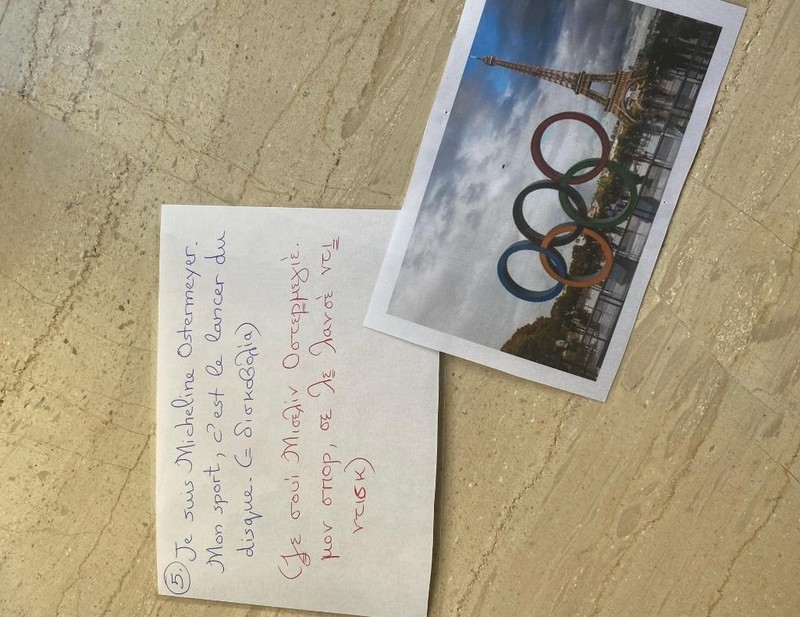 5. Je suis Micheline Ostermeyer.
Mon sport, c'est le lancer du
disque. (= δισκοβολία)
(Ζε σουί Μισελίν Οστερμεγιέ.
μον σπορ, σε λε λανσέ ντι
ντισκ)